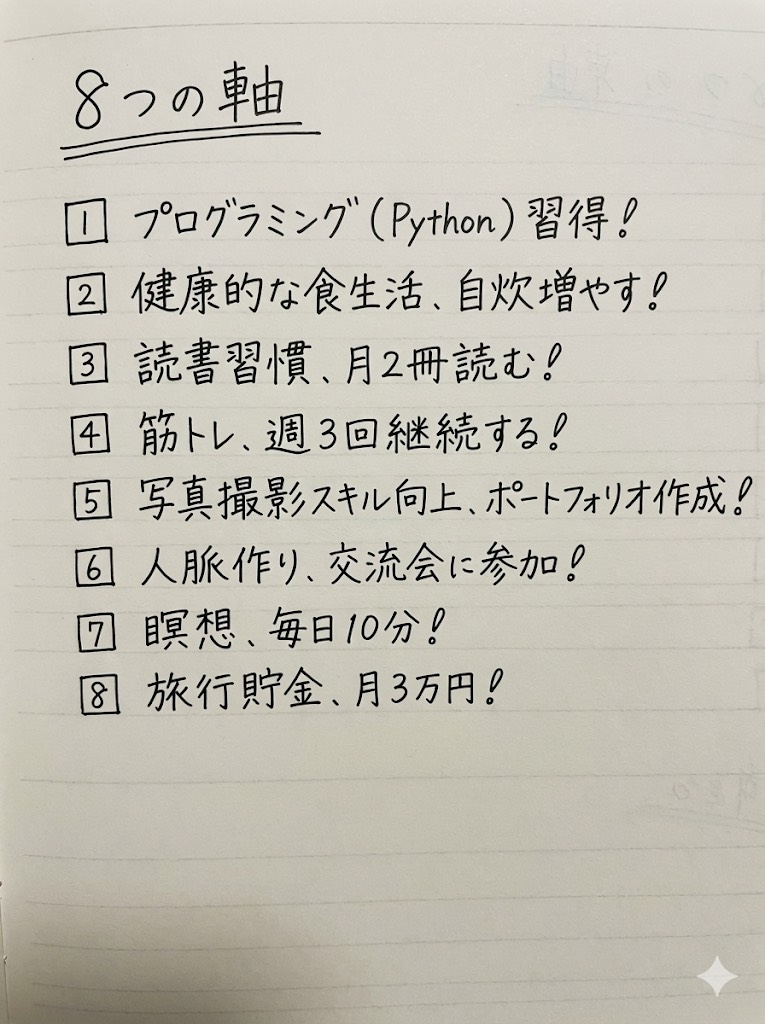 8つの軸
1 プログラミング(Python)習得!
2 健康的な食生活、自炊増やす!
3 読書習慣、月2冊読む!
4 筋トレ、週3回継続する!
5 写真撮影スキル向上、ポートフォリオ作成!
6 人脈作り、交流会に参加!
7 瞑想、毎日10分!
8 旅行貯金、月3万円!